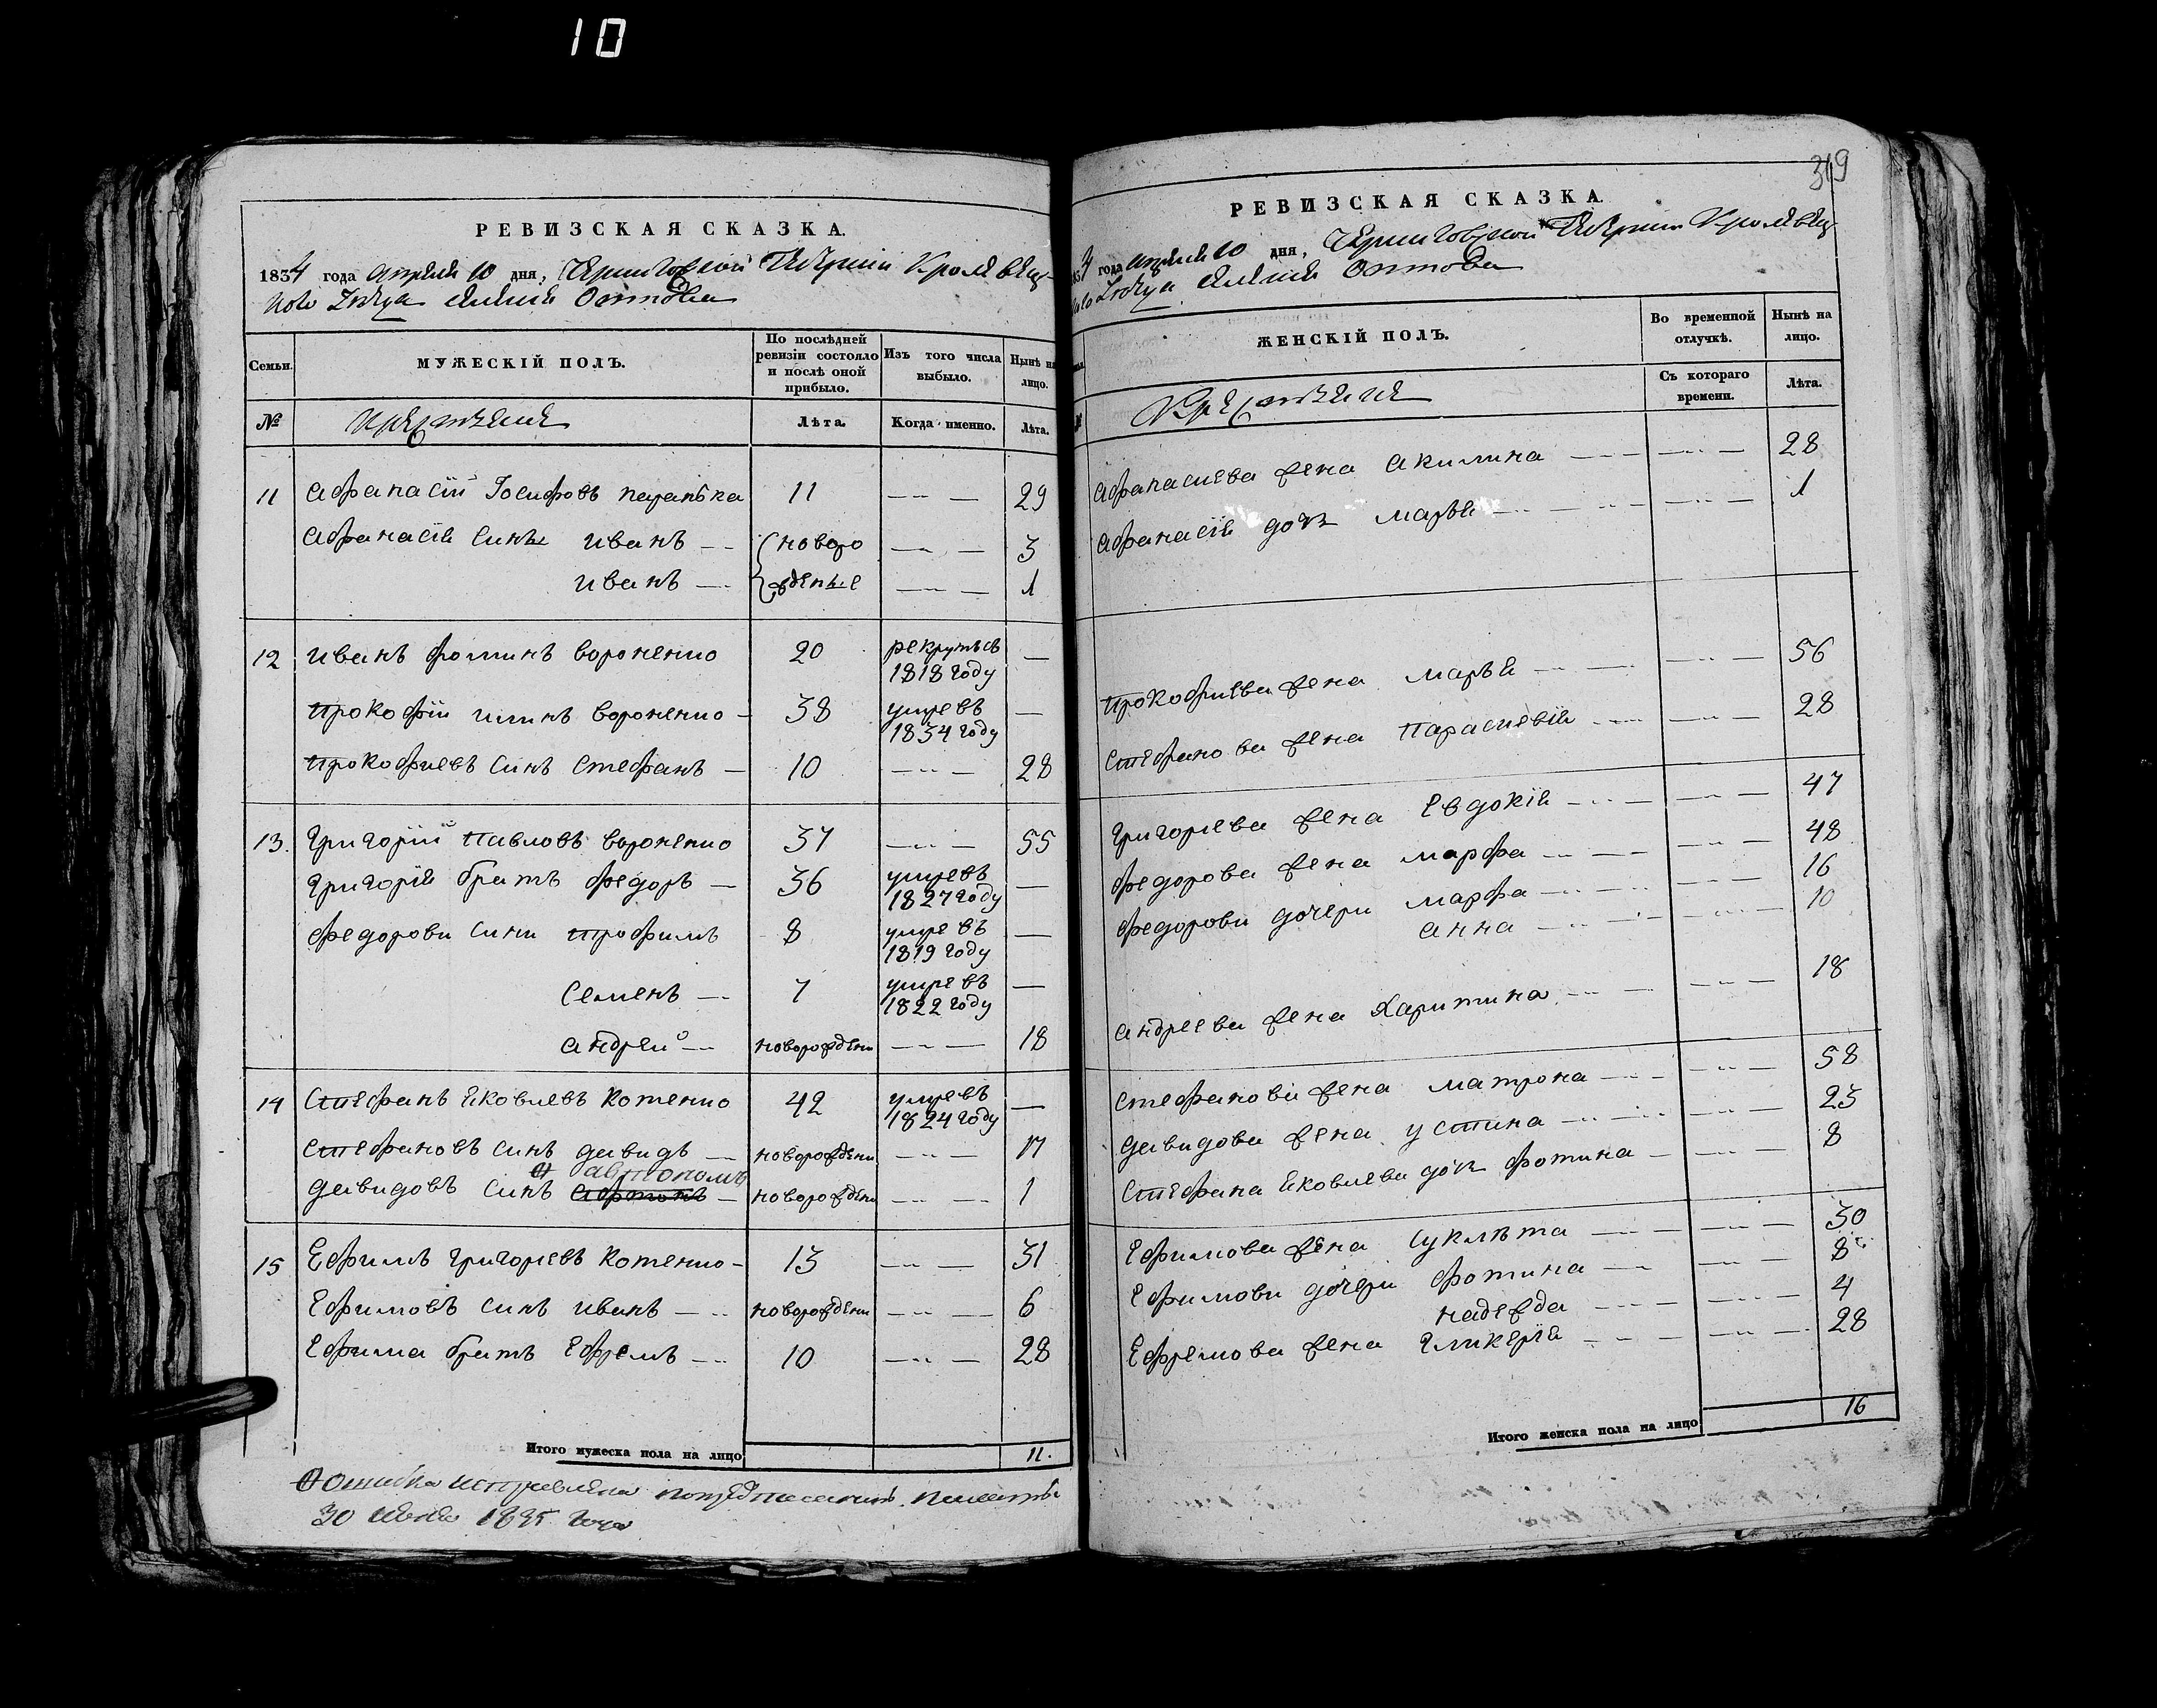 10
РЕВИЗСКАЯ СКАЗКА.
1834 года апреля 10 дня, Черниговской Губернии Кролевец-
кого
Семьи.
МУЖЕСКІЙ ПОЛЪ.
По послѣдней ревизіи состояло и послѣ оной прибыло.
Изъ того числа выбыло.
Нынѣ на лицо.
№
Крестьяне
Лѣта.
Когда именно.
Лѣта.
11 Афанасій Іосифовъ 11 29
Афанасія сины Иванъ новоро 3
Иванъ жденые 1
12 Иванъ Фоминъ Вороненко 20 рекрутъ въ —
1818 году
Прокофій Вороненко 38 умре въ —
1834 году
Прокофіевъ синъ Стефанъ 10 28
13. Григорій Павловъ Вороненко 37 55
Григорія братъ Федоръ 36 умре въ —
1827 году
Федорови сини Трофимъ 8 умре въ —
1819 году
Семенъ 7 умре въ —
1822 году
Андрей новорождени 18
14 Стефанъ Яковлевъ Котенко 42 умре въ —
1824 году
Стефановъ синъ Давидъ новорождени 17
Автономъ
Давидовъ синъ новорождени 1
15 Ефимъ Григорьевъ Котенко 13 31
Ефимовъ синъ Иванъ новорождени 6
Ефима братъ Ефремъ 10 28
Итого мужеска пола на лицо 11.
Ошибка исправлена
30 1835 года
319
РЕВИЗСКАЯ СКАЗКА.
4 года апреля 10 дня, Черниговской Губернии Кролевец-
ЖЕНСКІЙ ПОЛЪ.
Во временной отлучкѣ.
Нынѣ на лицо.
Крестьяне
Съ котораго времени.
Лѣта.
Афанасиева жена Акилина 28
Афанасія дочь Марья 1
Прокофиева жена Марья 56
Стефанова жена Параскевія 28
Григориева жена Евдокія 47
Федорова жена Марфа 48
Федорови дочери Марфа 16
Анна 10
Андреева жена Харитина 18
Стефанова жена Матрона 58
Давидова жена Устина 23
Стефана Яковлева дочь Фотина 8
Ефимова жена 30
Ефимови дочери Фотина 8
Надежда 4
Ефремова жена Гликерія 28
Итого женска пола на лицо 16